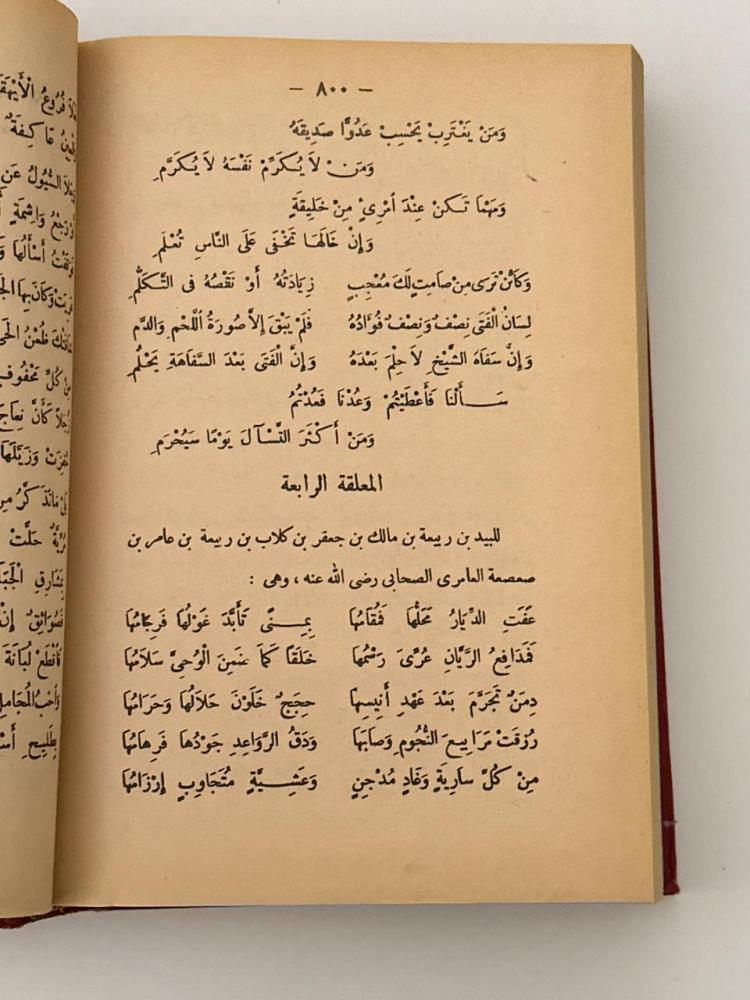 — ٨٠٠ —
وَمَنْ يَغْتَرِبْ يَحْسِبْ عَدُوًّا صَدِيقَهُ
وَمَنْ لَا يُكَرِّمْ نَفْسَهُ لَا يُكَرَّمِ
وَمَهْمَا تَكُنْ عِنْدَ امْرِئٍ مِنْ خَلِيقَةٍ
وَإِنْ خَالَهَا تَخْفَى عَلَى النَّاسِ تُعْلَمِ
وَكَائِنْ تَرَى مِنْ صَامِتٍ لَكَ مُعْجِبٍ زِيَادَتُهُ أَوْ نَقْصُهُ فِى التَّكَلُّمِ
لِسَانُ الْفَتَى نِصْفٌ وَنِصْفٌ فُؤَادُهُ فَلَمْ يَبْقَ إِلاَّ صُورَةُ اللَّحْمِ وَالدَّمِ
وَإِنَّ سَفَاهَ الشَّيْخِ لاَ حِلْمَ بَعْدَهُ وَإِنَّ الْفَتَى بَعْدَ السَّفَاهَةِ يَحْلُمِ
سَـأَلْنَا فَأَعْطَيْتُمْ وَعُدْنَا فَعُدْتُمُ
وَمَنْ أَكْثَرَ التَّسْآلَ يَوْمًا سَيُحْرَمِ
المعلقة الرابعة
للبيد بن ربيعة بن مالك بن جعفر بن كلاب بن ربيعة بن عامر بن
صعصعة العامرى الصحابى رضى الله عنه ، وهى :
عَفَتِ الدِّيَارُ مَحَلُّهَا فَمُقَامُهَا بِمِنًى تَأَبَّدَ غَوْلُهَا فَرِجَامُهَا
فَمَدَافِعُ الرَّيَّانِ عُرِّىَ رَسْمُهَا خَلَقًا كَمَا ضَمِنَ الْوُحِىَّ سَلاَمُهَا
دِمَنٌ تَجَرَّمَ بَعْدَ عَهْدِ أَنِيسِهَا حِجَجٌ خَلَوْنَ حَلاَلُهَا وَحَرَامُهَا
رُزِقَتْ مَرَابِيعَ النُّجُومِ وَصَابَهَا وَدْقُ الرَّوَاعِدِ جَوْدُهَا فَرِهَامُهَا
مِنْ كُلِّ سَارِيَةٍ وَغَادٍ مُدْجِنٍ وَعَشِيَّةٍ مُتَجَاوِبٍ إِرْزَامُهَا